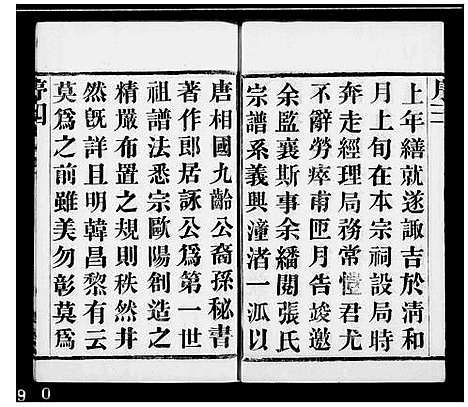 序三
上年繕就遂諏吉於清和
月上旬在本宗祠設局時
奔走經理局務常愷君尤
不辭勞瘁甫匝月告竣邀
余監襄斯事余繙閱張氏
宗譜系義興潼渚一派以
唐相國九齡公裔孫秘書
著作郎居詠公爲第一世
祖譜法悉宗歐陽創造之
精嚴布置之規則秩然井
然既詳且明韓昌黎有云
莫爲之前雖美勿彰莫爲
序四
9 0